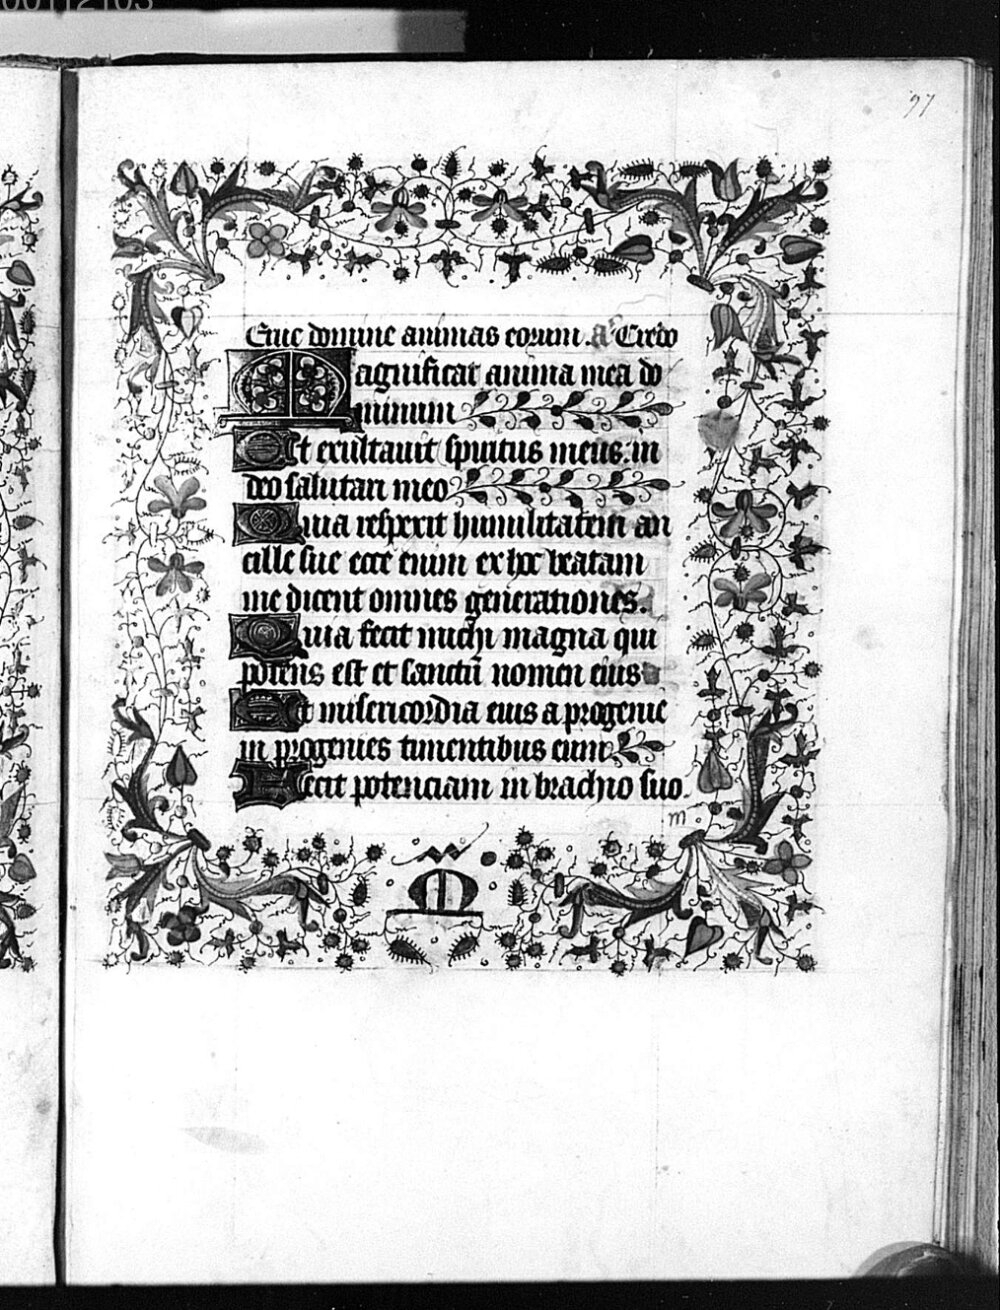 97
Erue domine animas eorum. a. Credo
Magnificat anima mea do
minum
Et exultauit spiritus meus: in
deo salutari meo
Quia respexit humilitatem an
cille sue ecce enim ex hoc beatam
me dicent omnes generationes.
Quia fecit michi magna qui
potens est et sanctū nomen eius
Et misericordia eius a progenie
in progenies timentibus eum.
Fecit potenciam in brachio suo.
m
M